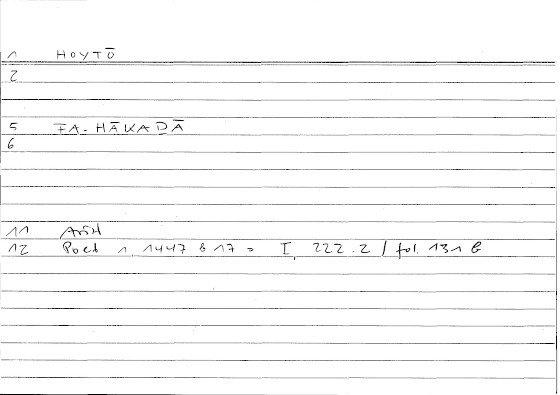 1 HOYTŌ
2
5 FA-HĀKADĀ
6
11
12 Poet 1, 1447 b 17 = I, 222.2 / fol. 131 b